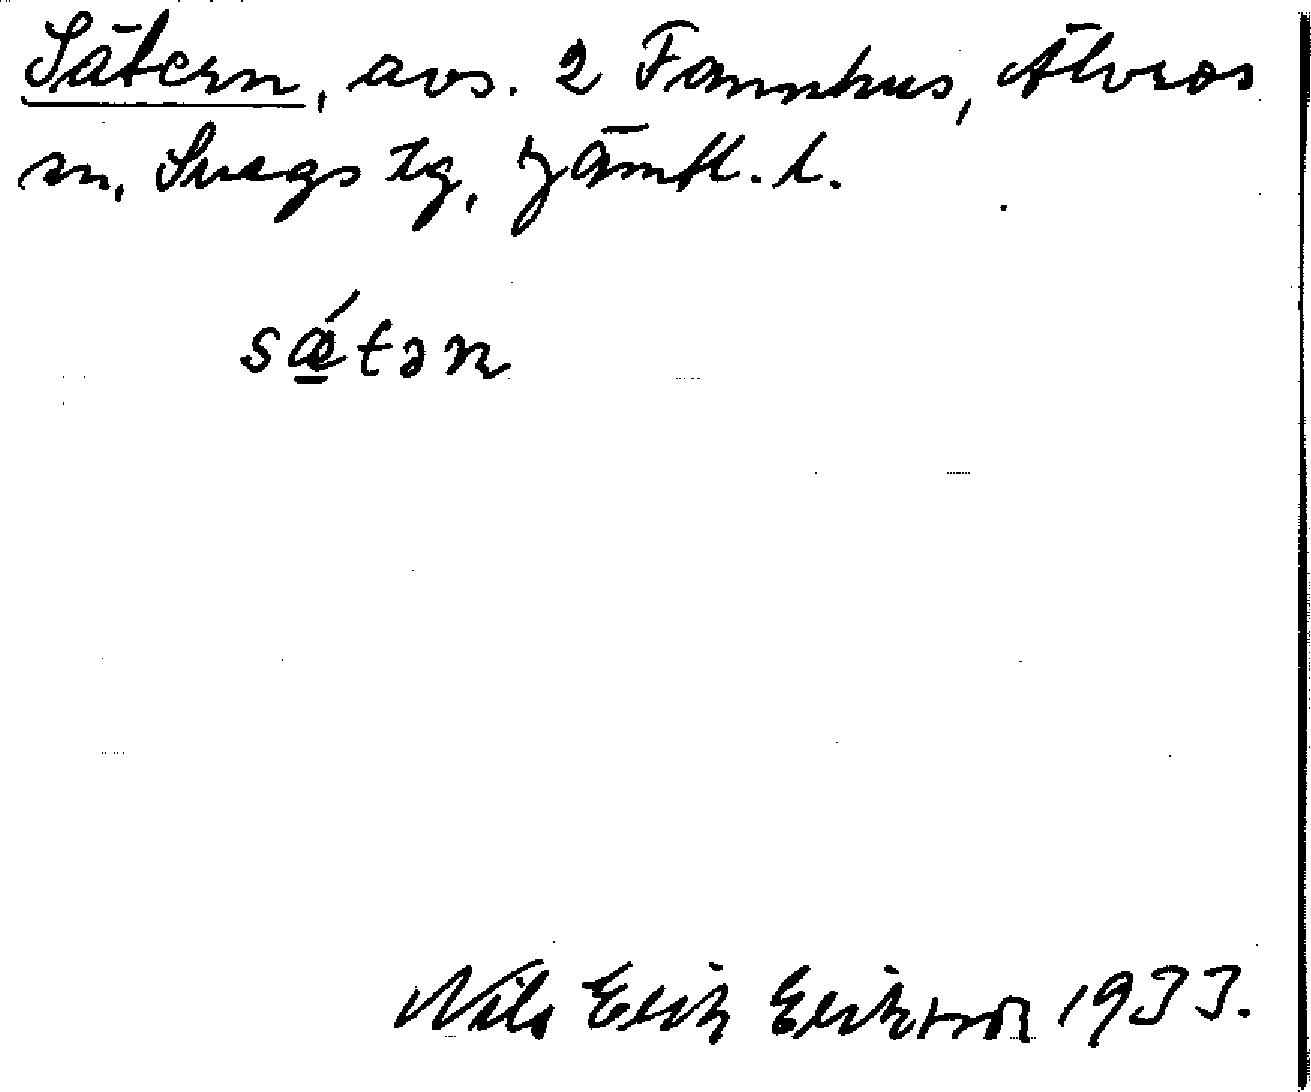 Sätern, avs. 2 Fannhus, Älvros
sn, Svegs tg, Jämtl. l.
sǽ̱tən
Nils Erik Erikson 1933.